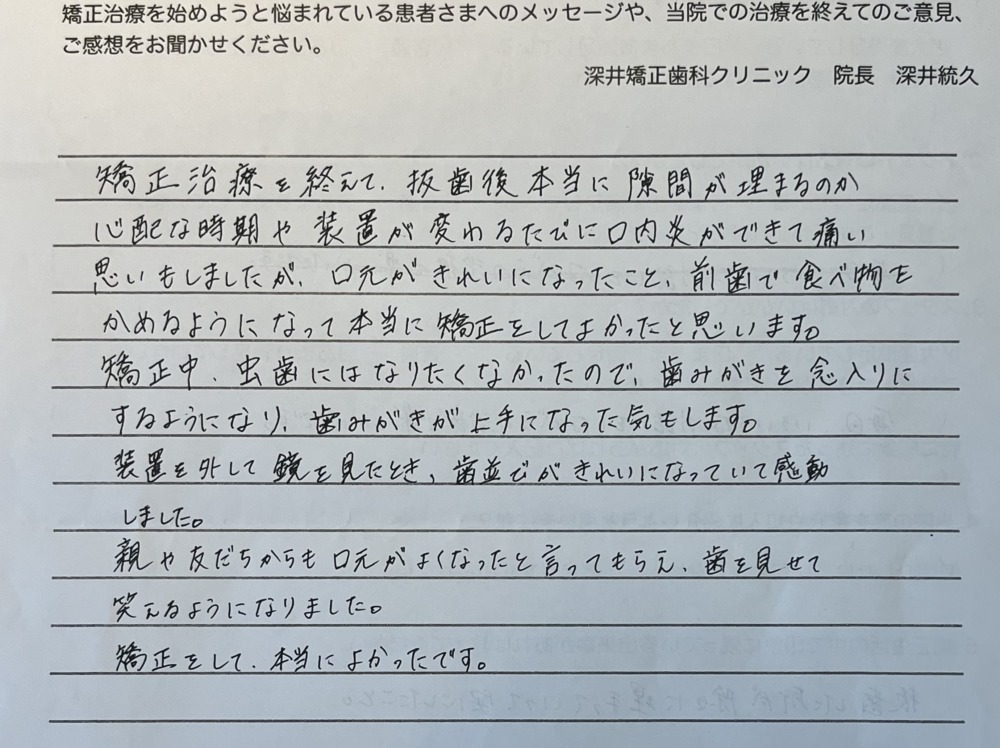 矯正治療を始めようと悩まれている患者さまへのメッセージや、当院での治療を終えてのご意見、
ご感想をお聞かせください。
深井矯正歯科クリニック 院長 深井統久
矯正治療を終えて、抜歯後本当に隙間が埋まるのか
心配な時期や装置が変わるたびに口内炎ができて痛い
思いもしましたが、口元がきれいになったこと、前歯で食べ物を
かめるようになって本当に矯正をしてよかったと思います。
矯正中、虫歯にはなりたくなかったので、歯みがきを念入りに
するようになり、歯みがきが上手になった気もします。
装置を外して鏡を見たとき、歯並びがきれいになっていて感動
しました。
親や友だちからも口元がよくなったと言ってもらえ、歯を見せて
笑えるようになりました。
矯正をして、本当によかったです。